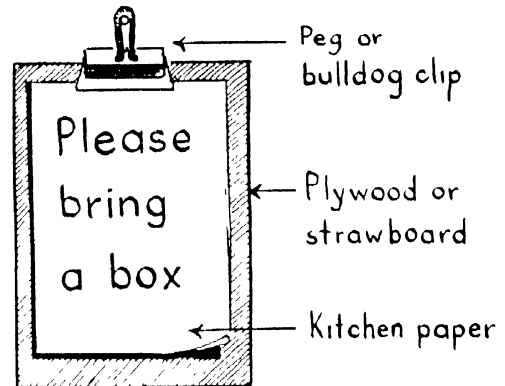 Peg or
bulldog clip
Please
bring
a box
Plywood or
strawboard
Kitchen paper